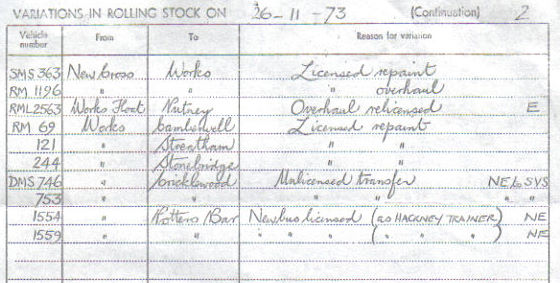 VARIATIONS IN ROLLING STOCK ON 26-11-73 (Continuation) 2
Vehicle number From To Reason for variation
SMS 363 New Cross Works Licensed repaint
RM 1196 " " " overhaul
RML 2563 Works Float Putney Overhaul relicensed E
RM 69 Works Camberwell Licensed repaint
121 " Streatham " "
244 " Stonebridge " "
DMS 746 " Cricklewood Unlicensed transfer NE to SYS
753 " " " " " "
1554 Potters Bar New bus licensed (as HACKNEY TRAINER) NE
1559 " " " " ( " " " ) NE